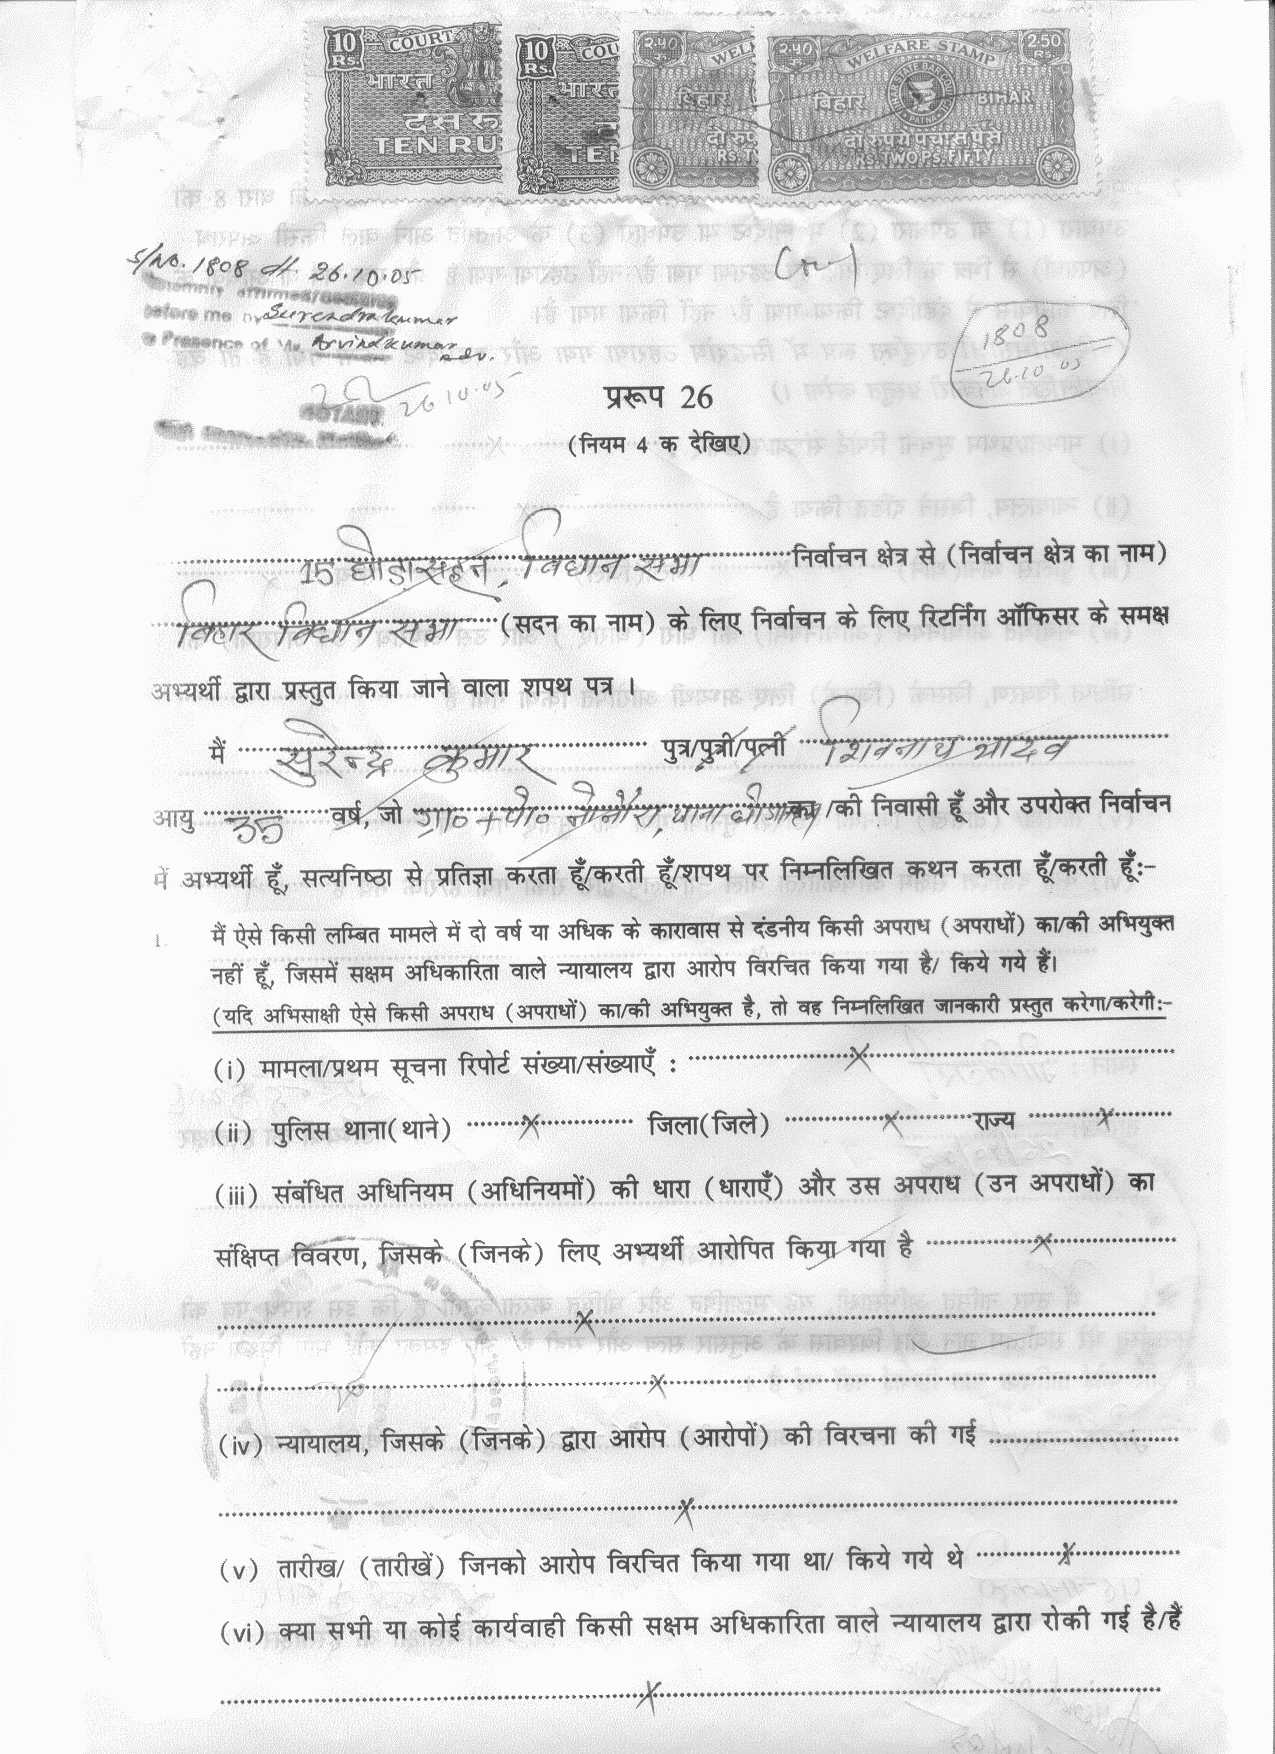 10 Rs. COURT भारत दस रु TEN RU
10 Rs. COU भारत TEN
2.40 WEL बिहार दो रुप Rs. T
2.40 WELFARE STAMP 2.50 Rs. बिहार BIHAR PATNA दो रुपये पचास पैसे Rs. TWO PS. FIFTY
S/No. 1808 dt. 26.10.05
Solemnly affirmed/declared
before me by Surendra kumar
Presence of Mr. Arvind kumar adv.
26.10.05
NOTARY
1808
26.10.05
प्ररूप 26
(नियम 4 क देखिए)
15 घोड़ासहन, विधान सभा निर्वाचन क्षेत्र से (निर्वाचन क्षेत्र का नाम)
बिहार विधान सभा (सदन का नाम) के लिए निर्वाचन के लिए रिटर्निंग ऑफिसर के समक्ष
अभ्यर्थी द्वारा प्रस्तुत किया जाने वाला शपथ पत्र ।
मैं सुरेन्द्र कुमार पुत्र/पुत्री/पत्नी शिवनाथ यादव
आयु 35 वर्ष, जो ग्रा० + पो० थाना का /की निवासी हूँ और उपरोक्त निर्वाचन
में अभ्यर्थी हूँ, सत्यनिष्ठा से प्रतिज्ञा करता हूँ/करती हूँ/शपथ पर निम्नलिखित कथन करता हूँ/करती हूँ:-
1. मैं ऐसे किसी लम्बित मामले में दो वर्ष या अधिक के कारावास से दंडनीय किसी अपराध (अपराधों) का/की अभियुक्त
नहीं हूँ, जिसमें सक्षम अधिकारिता वाले न्यायालय द्वारा आरोप विरचित किया गया है/ किये गये हैं।
(यदि अभिसाक्षी ऐसे किसी अपराध (अपराधों) का/की अभियुक्त है, तो वह निम्नलिखित जानकारी प्रस्तुत करेगा/करेगी:-
(i) मामला/प्रथम सूचना रिपोर्ट संख्या/संख्याएँ : X
(ii) पुलिस थाना(थाने) X जिला(जिले) X राज्य X
(iii) संबंधित अधिनियम (अधिनियमों) की धारा (धाराएँ) और उस अपराध (उन अपराधों) का
संक्षिप्त विवरण, जिसके (जिनके) लिए अभ्यर्थी आरोपित किया गया है X
X
X
(iv) न्यायालय, जिसके (जिनके) द्वारा आरोप (आरोपों) की विरचना की गई
X
(v) तारीख/ (तारीखें) जिनको आरोप विरचित किया गया था/ किये गये थे X
(vi) क्या सभी या कोई कार्यवाही किसी सक्षम अधिकारिता वाले न्यायालय द्वारा रोकी गई है/हैं
X